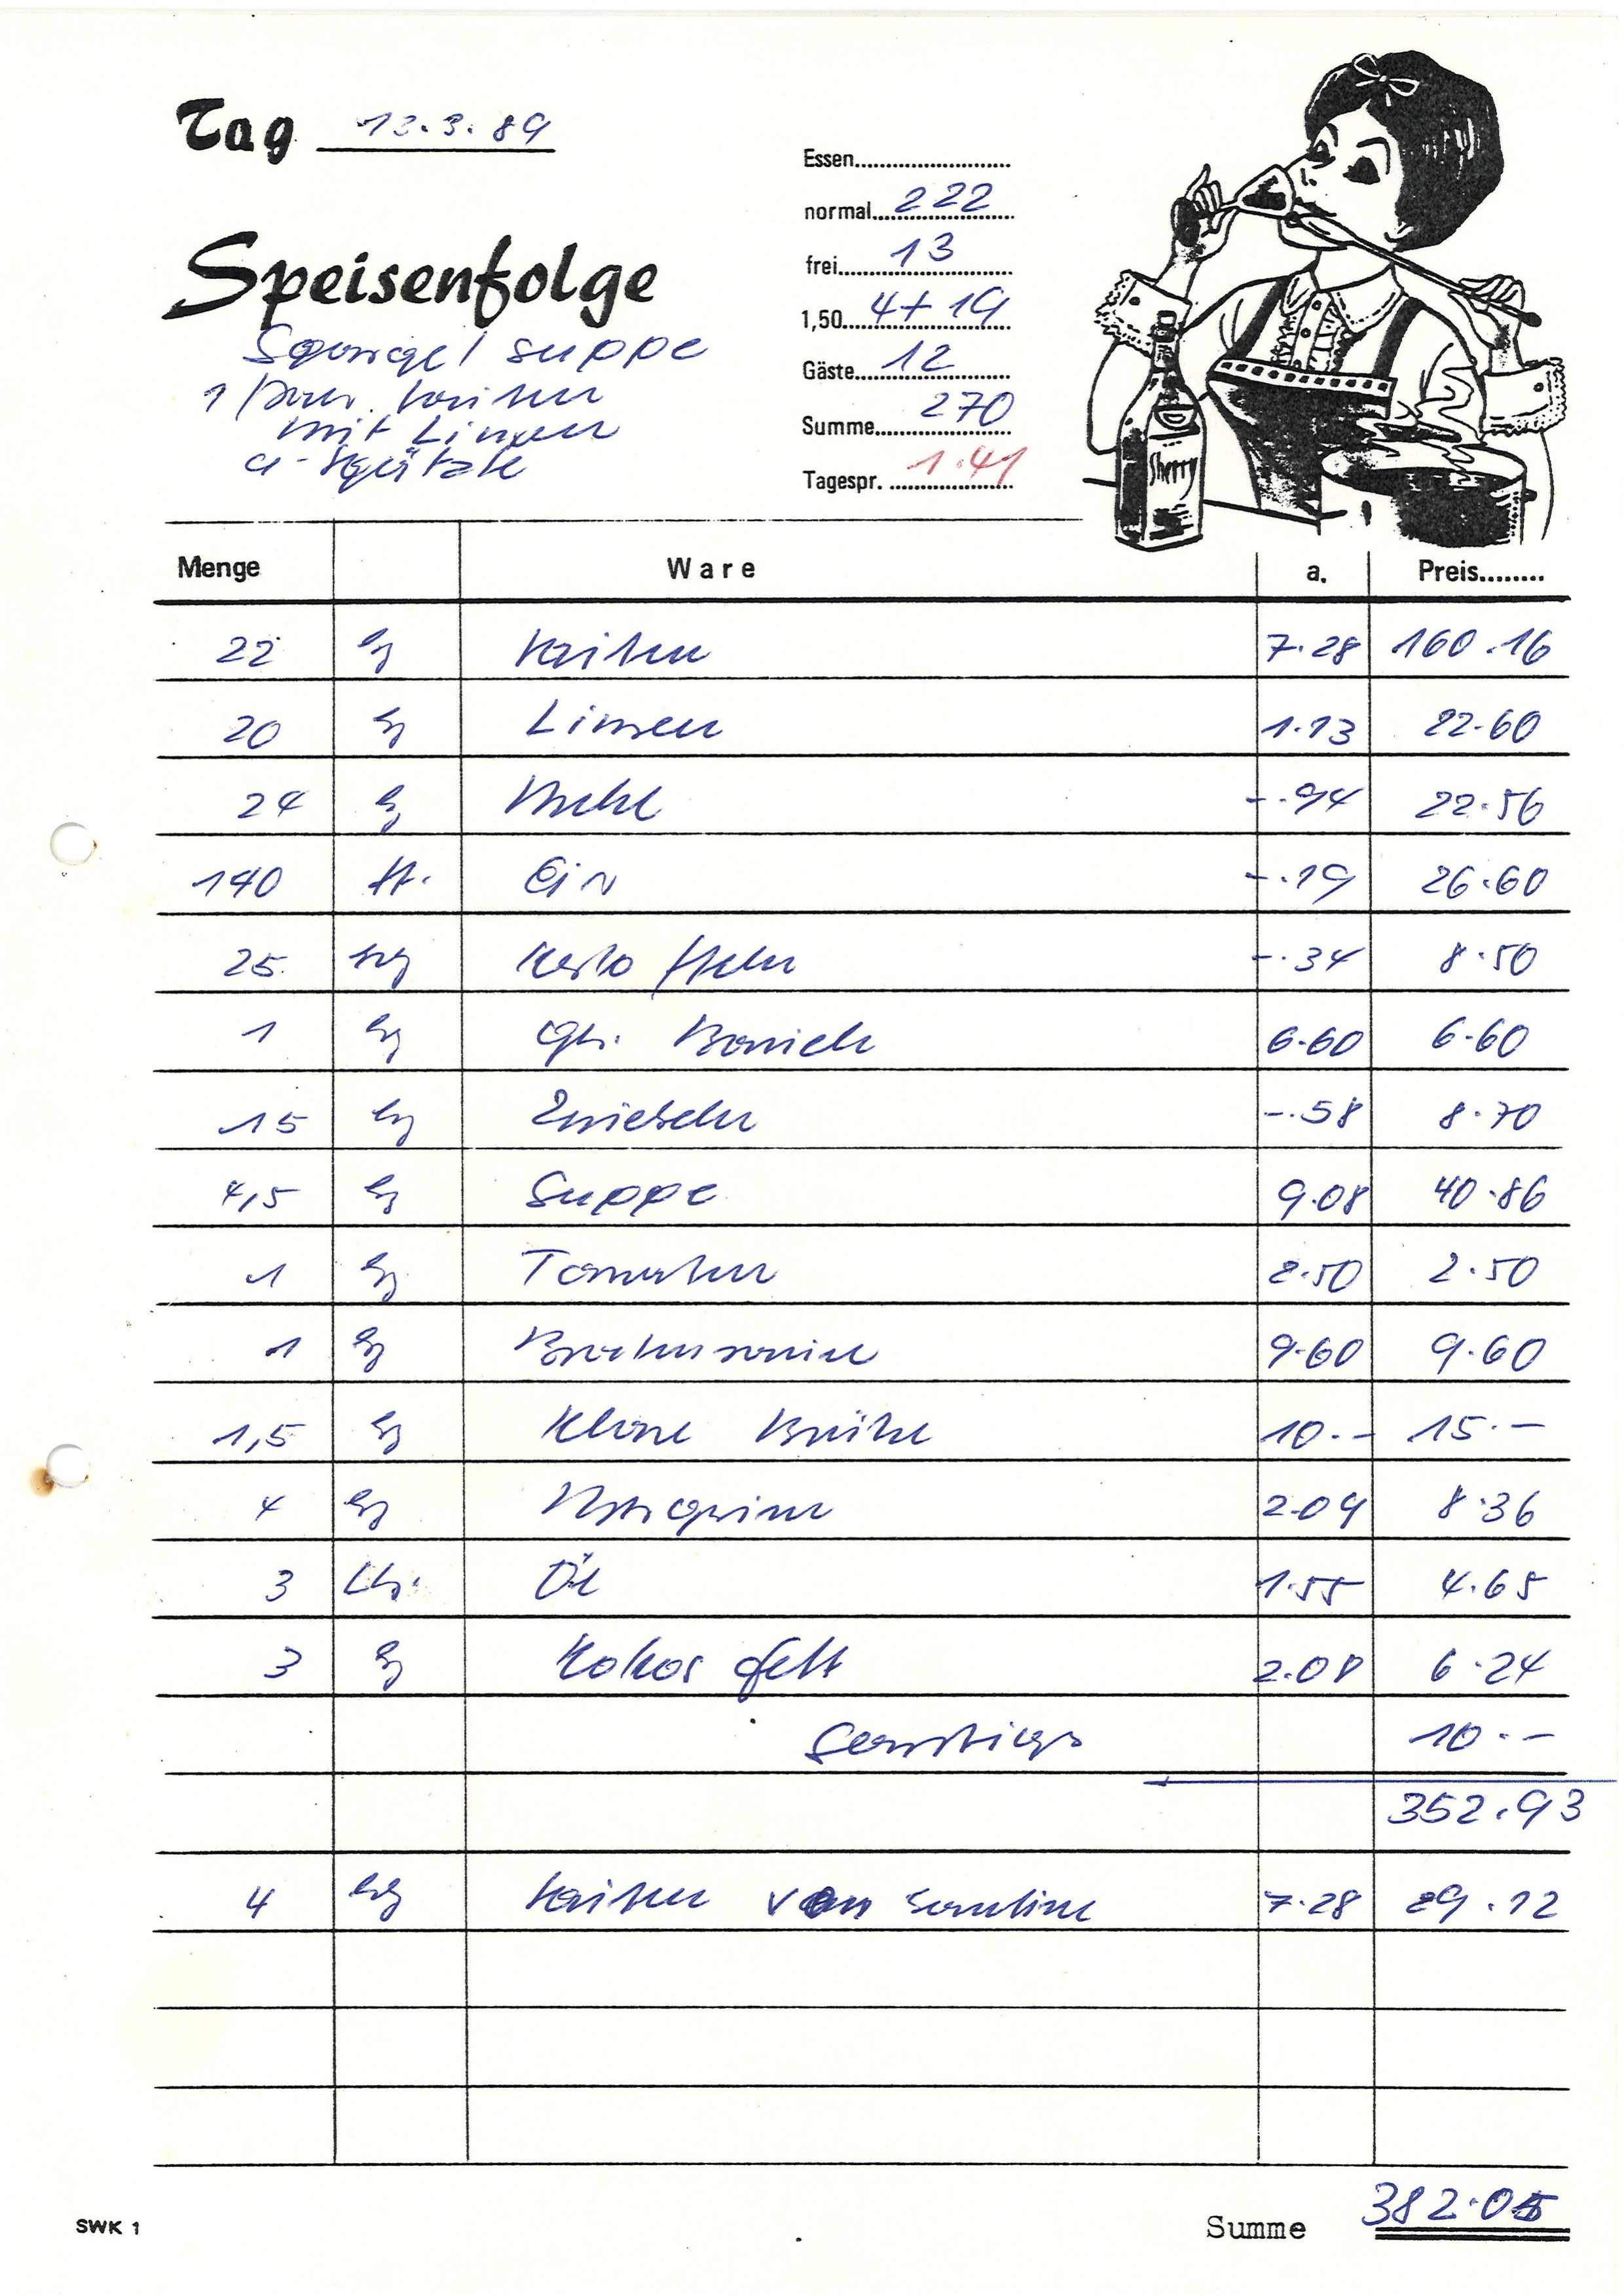 Tag 13.3.89
Speisenfolge
Spargelsuppe
1 Paar Saiten
mit Linsen
a-Spätzle
Essen
normal 222
frei 13
1,50 4+19
Gäste 12
Summe 270
Tagespr. 1.41
Sherry
Menge Ware a. Preis
22 kg Saiten 7.28 160.16
20 kg Linsen 1.13 22.60
24 kg Mehl -.94 22.56
140 St. Eier -.19 26.60
25 kg Kartoffeln -.34 8.50
1 kg gek. Bauch 6.60 6.60
15 kg Zwiebeln -.58 8.70
4,5 kg Suppe 9.08 40.86
1 kg Tomaten 2.50 2.50
1 kg Bratensauce 9.60 9.60
1,5 kg Klare Brühe 10.- 15.-
4 kg Margarine 2.09 8.36
3 Ltr. Öl 1.55 4.65
3 kg Kokosfett 2.08 6.24
Sonstiges 10.-
352.93
4 kg Saiten von Kantine 7.28 29.12
SWK 1
Summe 382.05